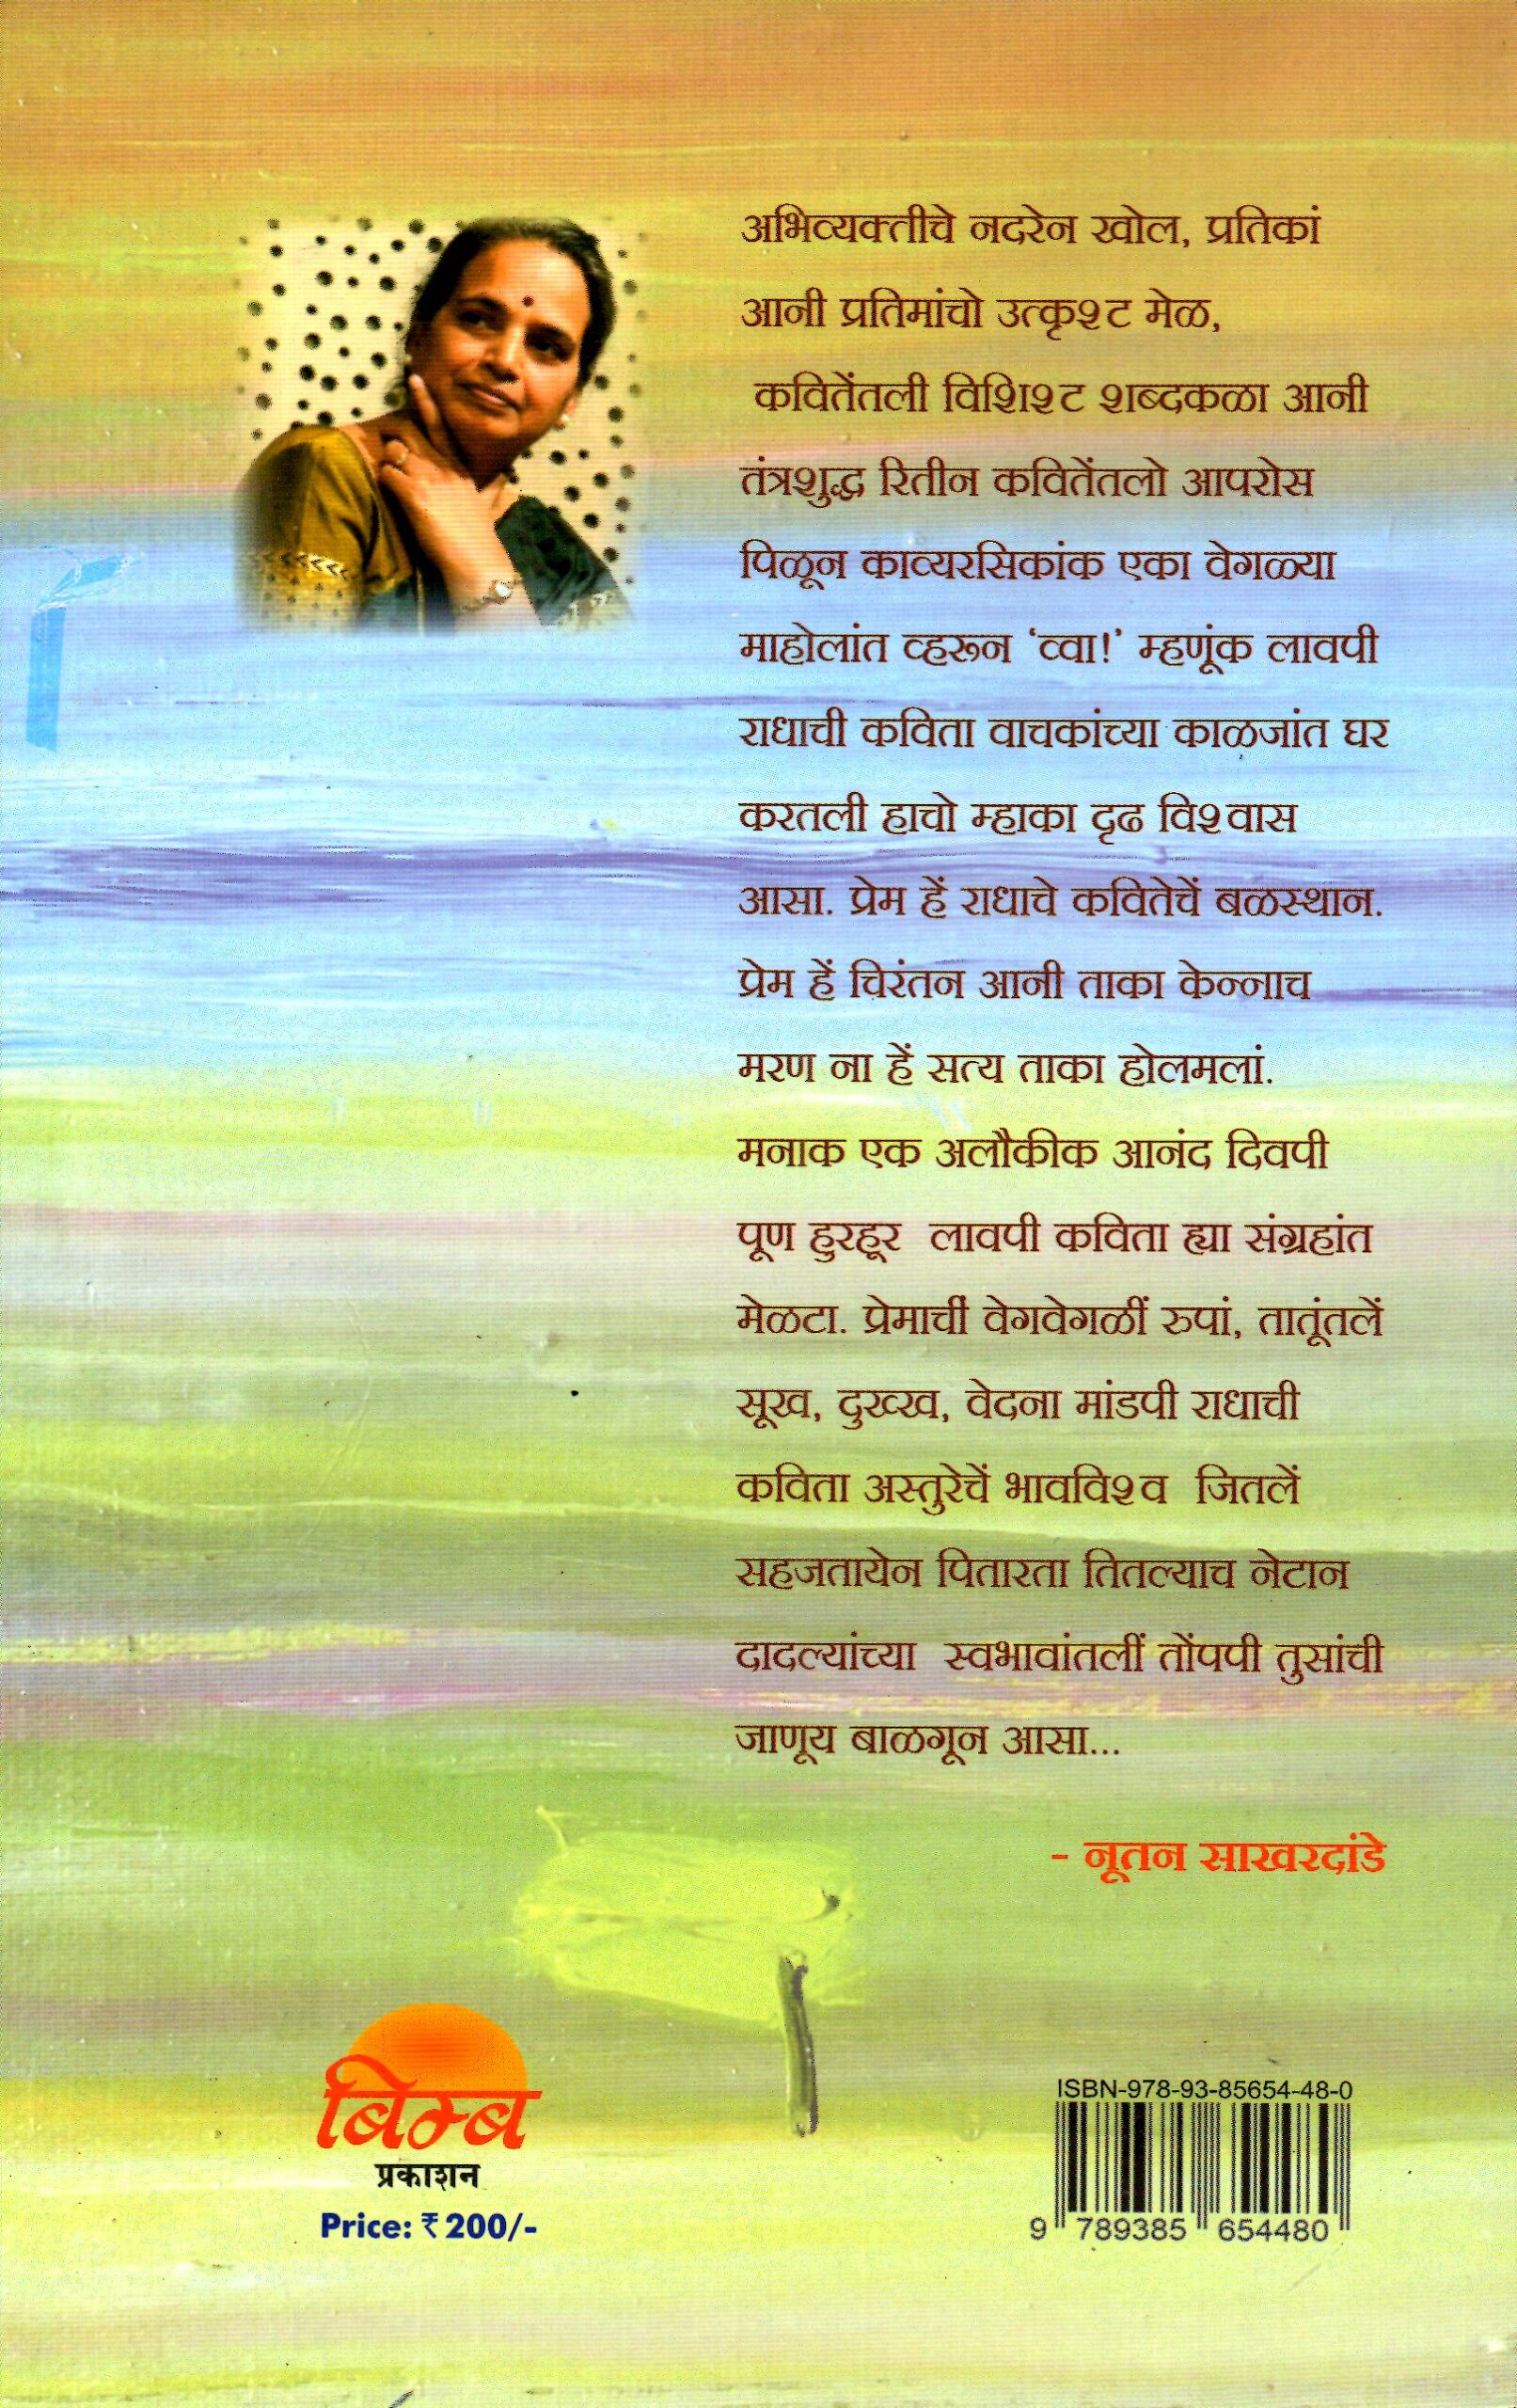 अभिव्यक्तीचे नदरेन खोल, प्रतिकां
आनी प्रतिमांचो उत्कृश्ट मेळ,
कवितेंतली विशिश्ट शब्दकळा आनी
तंत्रशुद्ध रितीन कवितेंतलो आपरोस
पिळून काव्यरसिकांक एका वेगळ्या
माहोलांत व्हरून ‘व्वा!’ म्हणूंक लावपी
राधाची कविता वाचकांच्या काळजांत घर
करतली हाचो म्हाका दृढ विश्वास
आसा. प्रेम हें राधाचे कवितेचें बळस्थान.
प्रेम हें चिरंतन आनी ताका केन्नाच
मरण ना हें सत्य ताका होलमलां.
मनाक एक अलौकीक आनंद दिवपी
पूण हुरहूर लावपी कविता ह्या संग्रहांत
मेळटा. प्रेमाचीं वेगवेगळीं रुपां, तातूंतलें
सूख, दुख्ख, वेदना मांडपी राधाची
कविता अस्तुरेचें भावविश्व जितलें
सहजतायेन पितारता तितल्याच नेटान
दादल्यांच्या स्वभावांतलीं तोंपपी तुसांची
जाणूय बाळगून आसा...
- नूतन साखरदांडे
बिम्ब
प्रकाशन
Price: ₹ 200/-
ISBN-978-93-85654-48-0
9 789385 654480